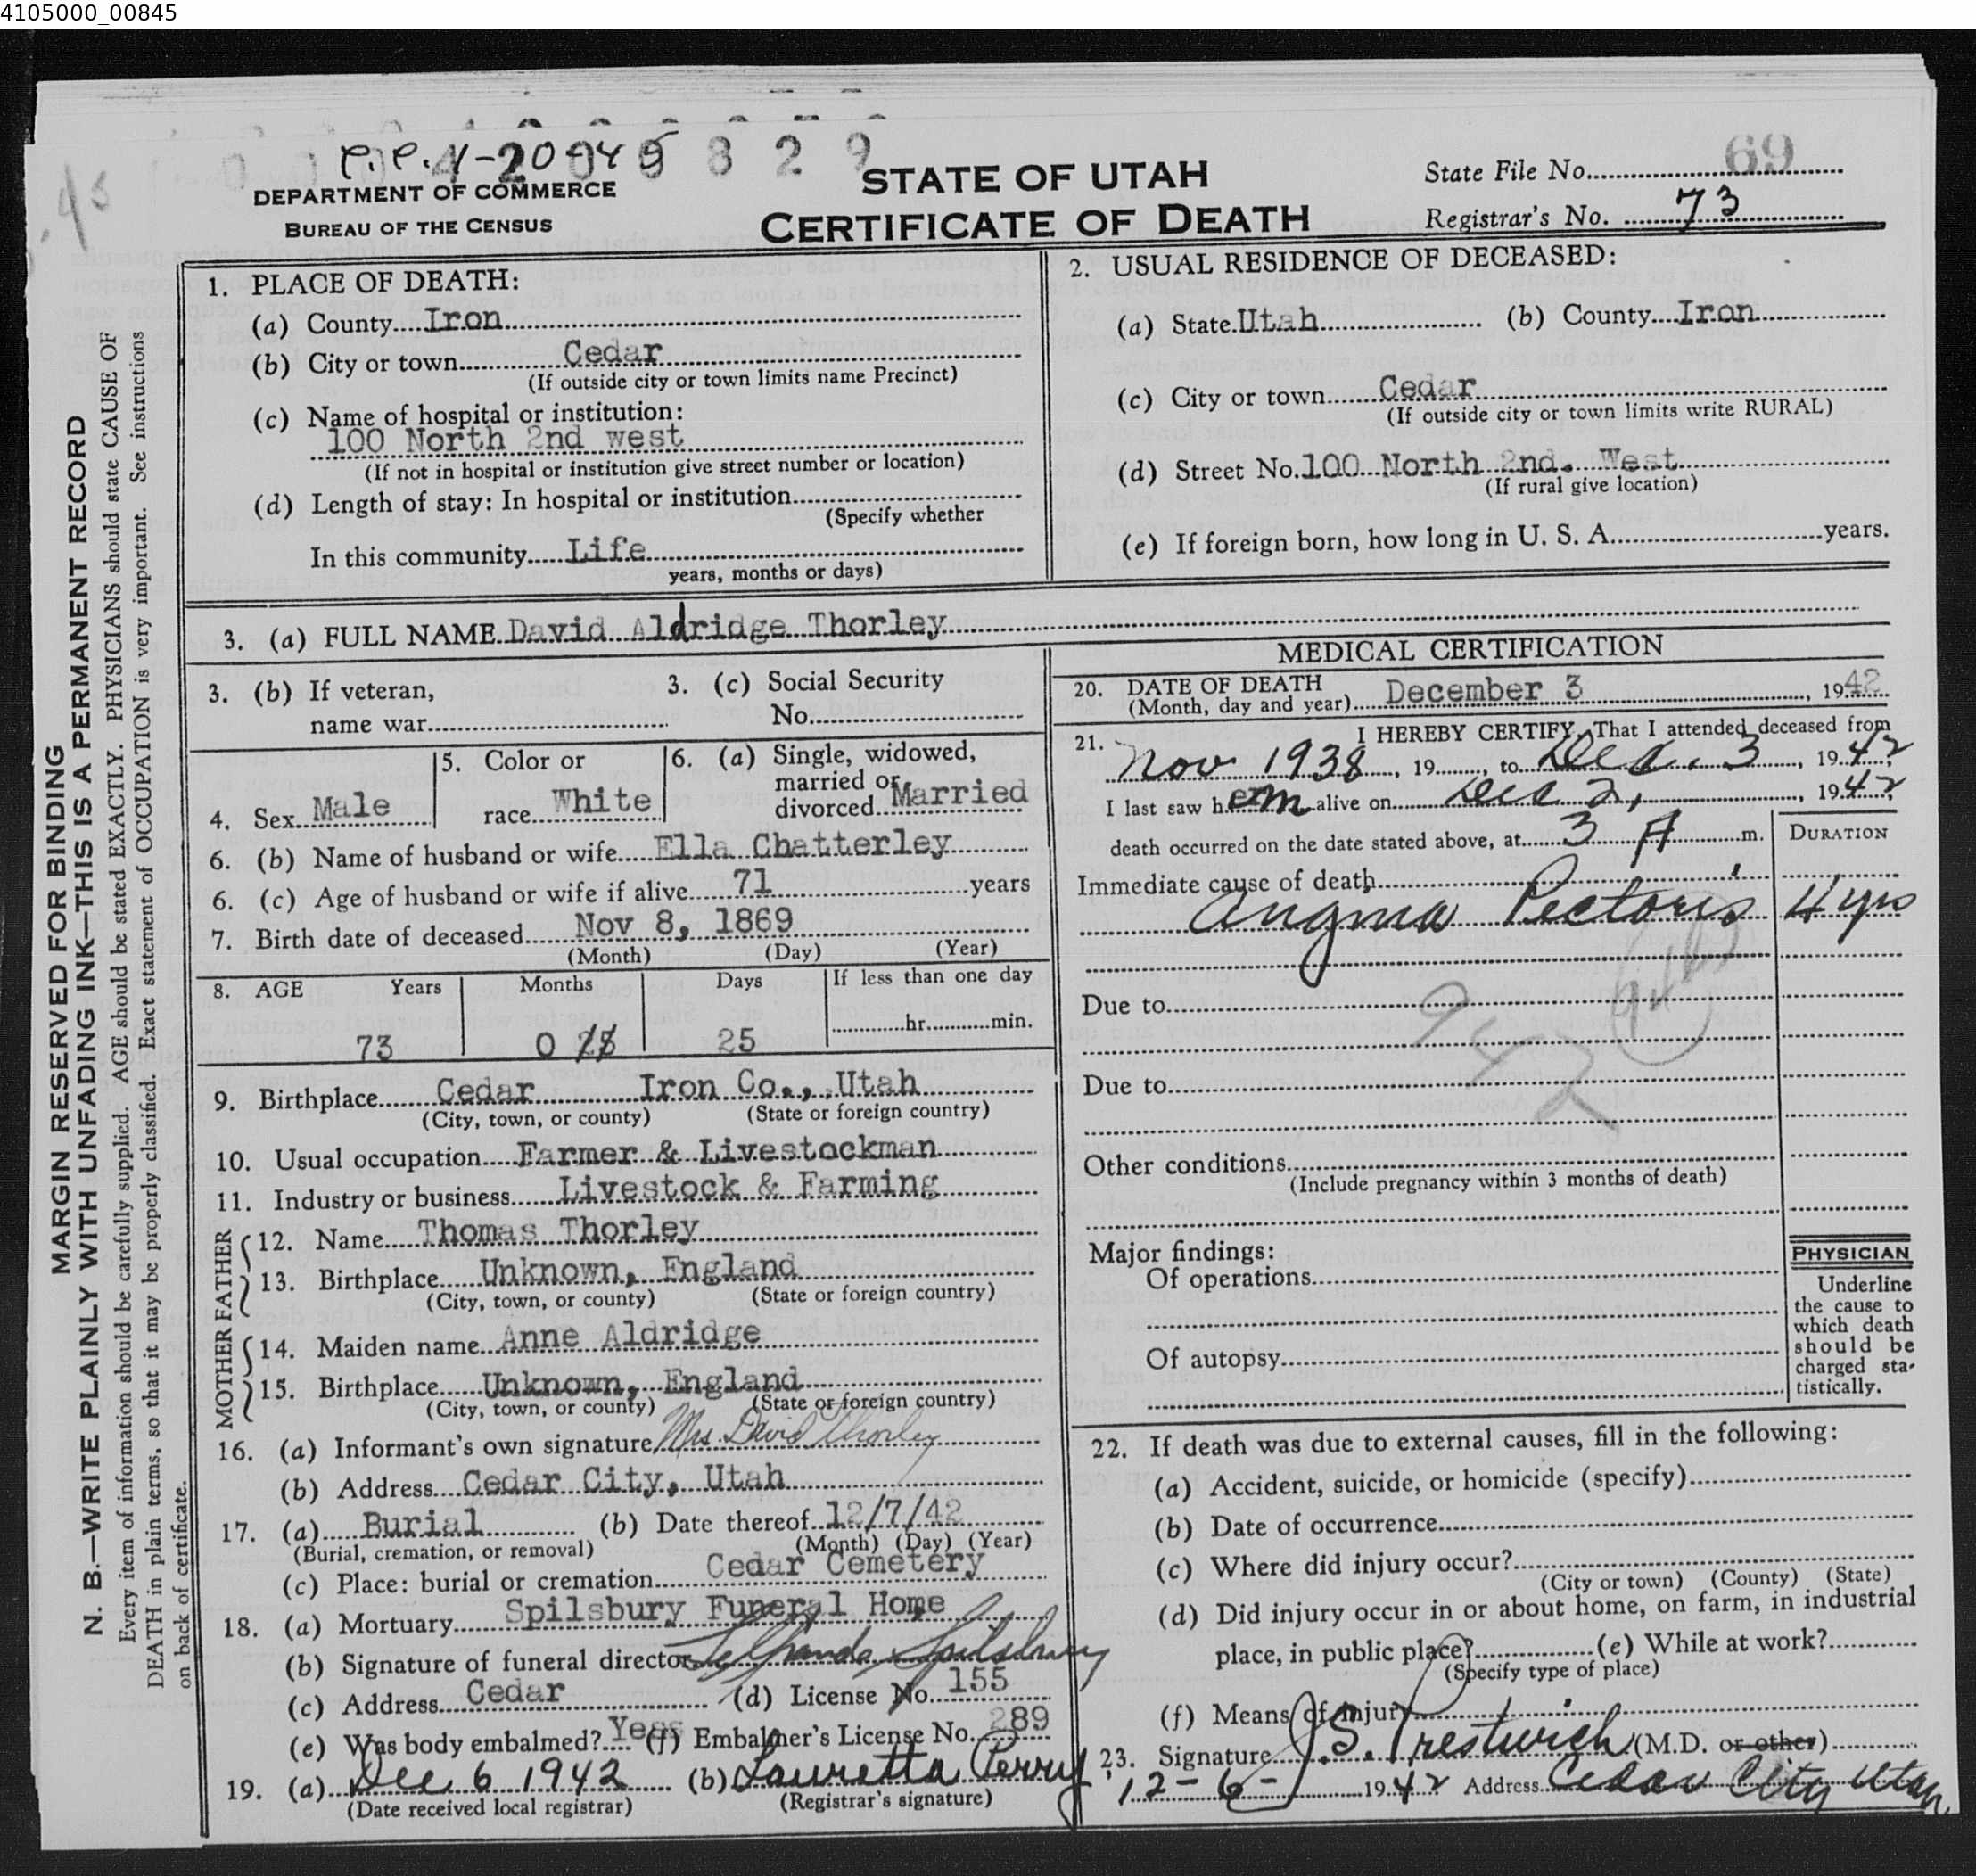 4105000_00845
DEPARTMENT OF COMMERCE
BUREAU OF THE CENSUS
STATE OF UTAH
CERTIFICATE OF DEATH
State File No. 69
Registrar's No. 73
MARGIN RESERVED FOR BINDING
N. B.—WRITE PLAINLY WITH UNFADING INK—THIS IS A PERMANENT RECORD
Every item of information should be carefully supplied. AGE should be stated EXACTLY. PHYSICIANS should state CAUSE OF
DEATH in plain terms, so that it may be properly classified. Exact statement of OCCUPATION is very important. See instructions
on back of certificate.
1. PLACE OF DEATH:
(a) County Iron
(b) City or town Cedar
(If outside city or town limits name Precinct)
(c) Name of hospital or institution:
100 North 2nd west
(If not in hospital or institution give street number or location)
(d) Length of stay: In hospital or institution
(Specify whether
In this community Life
years, months or days)
2. USUAL RESIDENCE OF DECEASED:
(a) State Utah (b) County Iron
(c) City or town Cedar
(If outside city or town limits write RURAL)
(d) Street No. 100 North 2nd. West
(If rural give location)
(e) If foreign born, how long in U. S. A. years.
3. (a) FULL NAME David Aldridge Thorley
3. (b) If veteran, 3. (c) Social Security
name war No.
4. Sex Male 5. Color or race White 6. (a) Single, widowed, married or divorced Married
6. (b) Name of husband or wife Ella Chatterley
6. (c) Age of husband or wife if alive 71 years
7. Birth date of deceased Nov 8, 1869
(Month) (Day) (Year)
8. AGE Years Months Days If less than one day
hr. min.
73 0 25
9. Birthplace Cedar Iron Co., Utah
(City, town, or county) (State or foreign country)
10. Usual occupation Farmer & Livestockman
11. Industry or business Livestock & Farming
FATHER
12. Name Thomas Thorley
13. Birthplace Unknown, England
(City, town, or county) (State or foreign country)
MOTHER
14. Maiden name Anne Aldridge
15. Birthplace Unknown, England
(City, town, or county) (State or foreign country)
16. (a) Informant's own signature Mrs. David Thorley
(b) Address Cedar City, Utah
17. (a) Burial (b) Date thereof 12/7/42
(Burial, cremation, or removal) (Month) (Day) (Year)
(c) Place: burial or cremation Cedar Cemetery
18. (a) Mortuary Spilsbury Funeral Home
(b) Signature of funeral director Spilsbury
(c) Address Cedar (d) License No. 155
(e) Was body embalmed? Yes (f) Embalmer's License No. 289
19. (a) Dec 6 1942 (b) Lauretta Perry
(Date received local registrar) (Registrar's signature)
MEDICAL CERTIFICATION
20. DATE OF DEATH
(Month, day and year) December 3, 1942
21. I HEREBY CERTIFY, That I attended deceased from
Nov 1938, 19 , to Dec. 3, 1942
I last saw h im alive on Dec 2, 1942
death occurred on the date stated above, at 3 A m.
DURATION
Immediate cause of death
Angina Pectoris 4 yrs
Due to
942
Due to
Other conditions
(Include pregnancy within 3 months of death)
Major findings:
Of operations
Of autopsy
PHYSICIAN
Underline
the cause to
which death
should be
charged sta-
tistically.
22. If death was due to external causes, fill in the following:
(a) Accident, suicide, or homicide (specify)
(b) Date of occurrence
(c) Where did injury occur?
(City or town) (County) (State)
(d) Did injury occur in or about home, on farm, in industrial
place, in public place? (e) While at work?
(Specify type of place)
(f) Means of injury
23. Signature J. S. Prestwich (M.D. or other)
12-6- 1942 Address Cedar City Utah